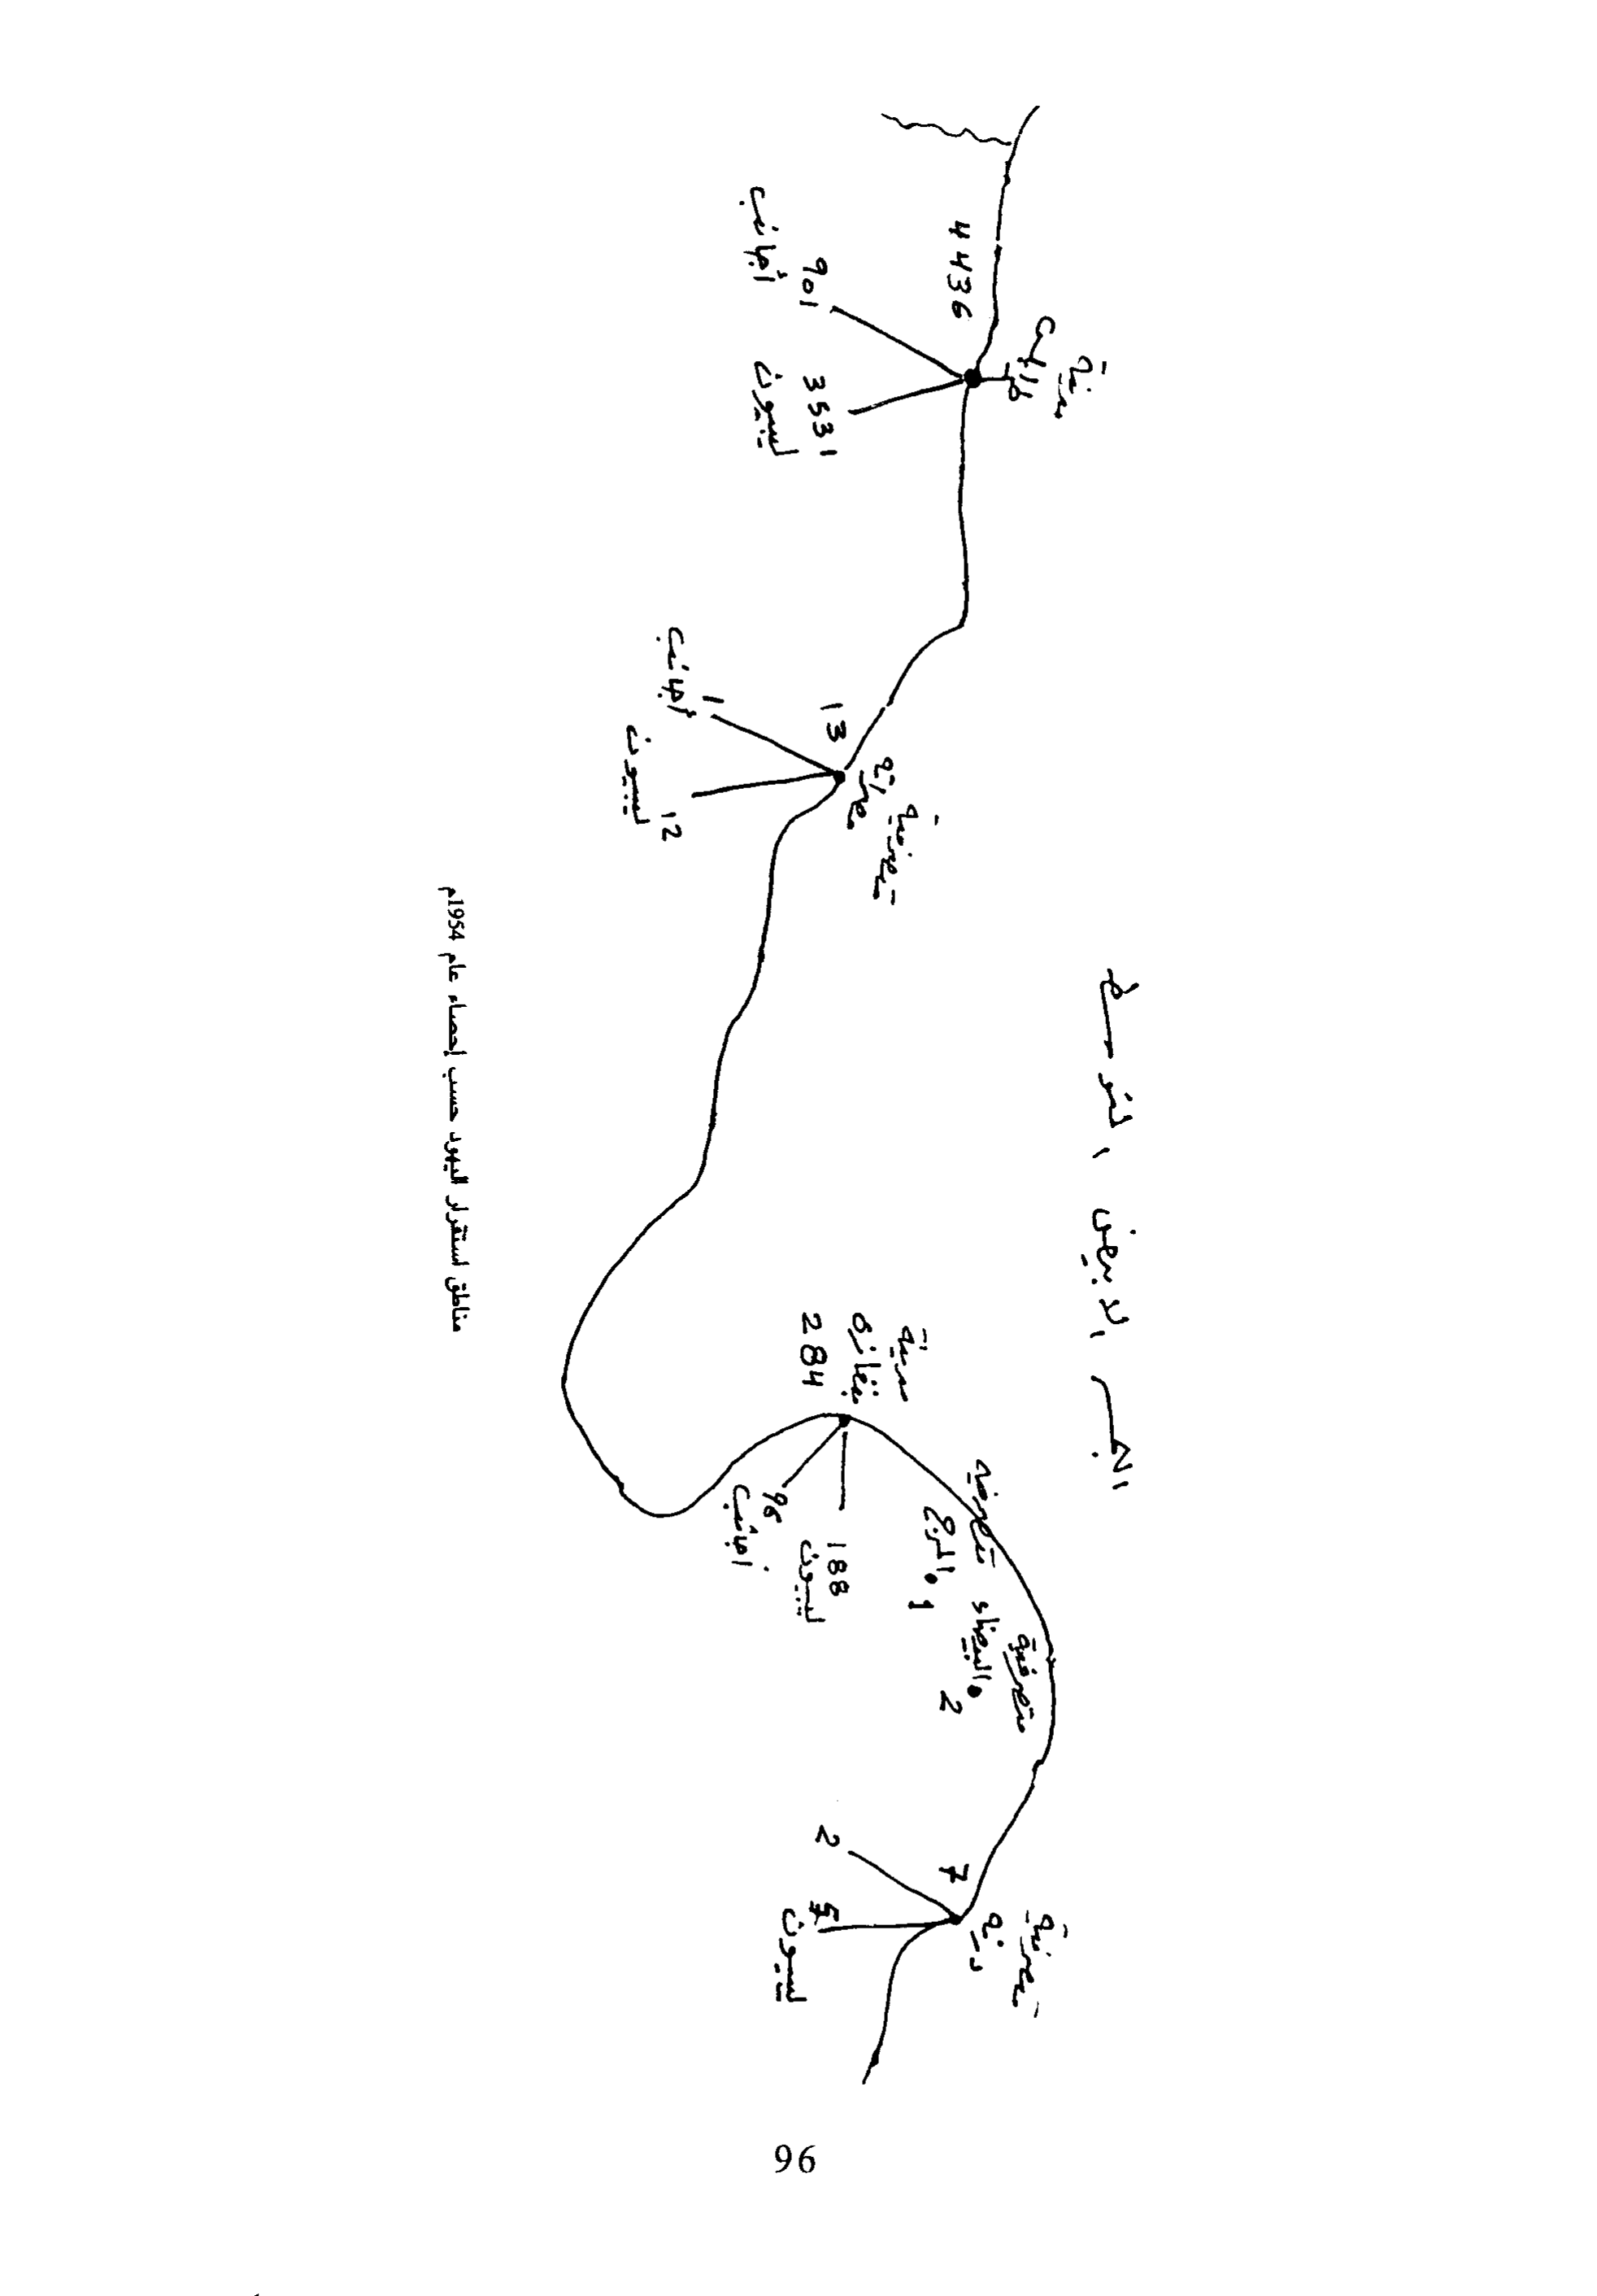 البحر الأبيض المتوسط
مدينة
طرابلس
4436
901
أجانب
3531
ليبيون
متصرفية
مصراته
13
1
أجانب
12
ليبيون
مدينة
بنغازي
284
188
ليبيون
96
أجانب
متصرفية
المرج
1
متصرفية
البيضاء
2
متصرفية
درنة
7
2
5
ليبيون
مناطق استقرار اليهود حسب إحصاء عام 1954م
96